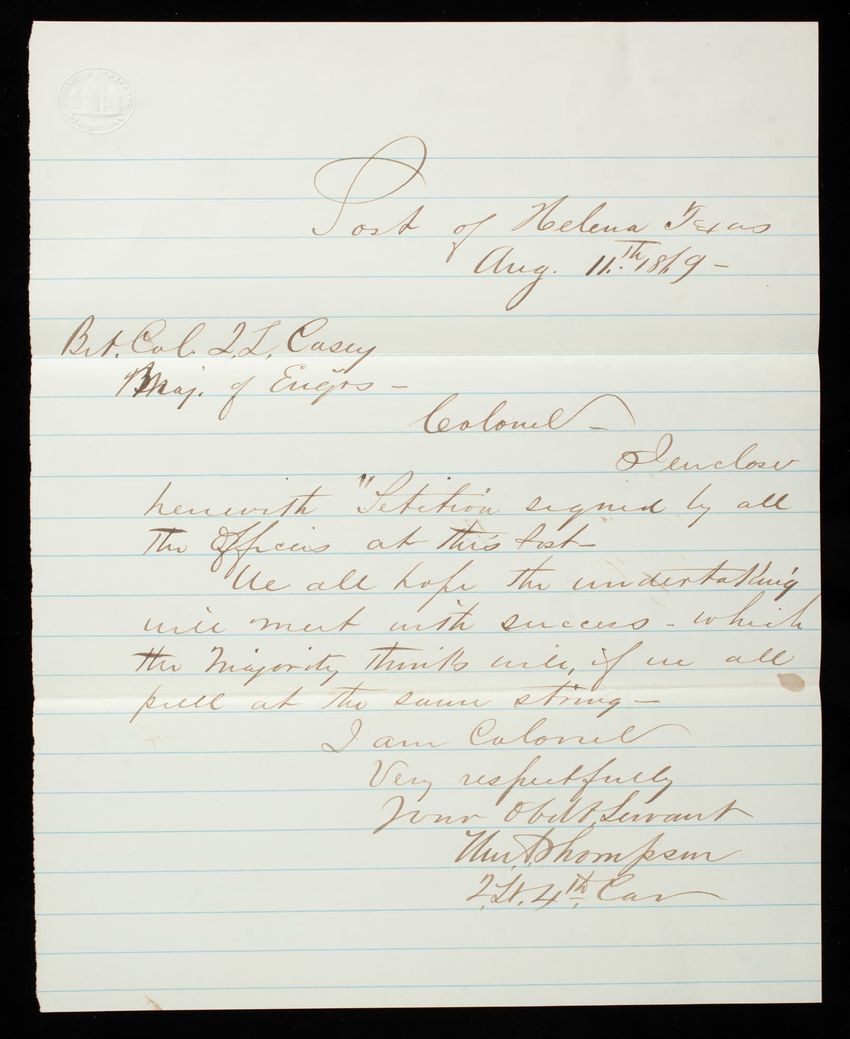 Post of Helena Texas
Aug. 11th. 1869 -
Bvt. Col. T. L. Casey
Maj. of Engrs -
Colonel -
I enclose
herewith "Petition signed by all
the Officers at this Post -
We all hope the undertaking
will meet with success - which
the Majority thinks will, if we all
pull at the same string -
I am Colonel
Very respectfully
Your Obdt. Servant
Wm. Thompson
2. Lt. 4th. Cav